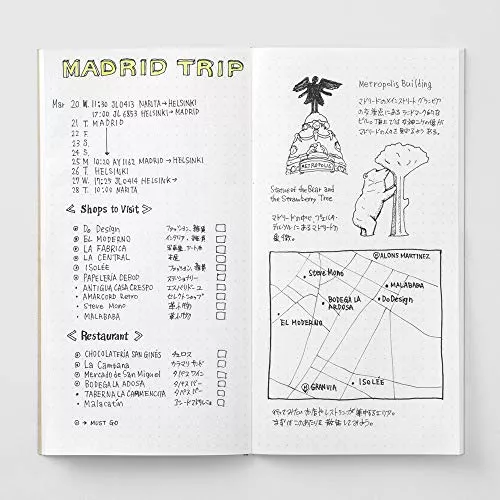 MADRID TRIP
Mar 20 W. 11:30 JL0413 NARITA→HELSINKI
17:00 JL6853 HELSINKI→MADRID
21 T. MADRID
22 F.
23 S.
24 S.
25 M 10:20 AY1162 MADRID→HELSINKI
26 T HELSINKI
27 W. 17:25 JL0414 HELSINK→
28 T. 10:00 NARITA
≪ Shops to Visit ≫
⊙ Do Design ファッション、雑貨
⊙ EL MODERNO インテリア、雑貨
⊙ LA FABRICA
⊙ LA CENTRAL 本屋
⊙ ISOLÉE ファッション、雑貨
⊙ PAPELERÍA DEBOD ステーショナリー
• ANTIGUA CASA CRESPO エスパドリーユ
• AMARCORD Retro セレクトショップ
• Steve Mono 革小物
• MALABABA 革小物
≪ Restaurant ≫
⊙ CHOCOLATERÍA SAN GINÉS チュロス
⊙ La Campana カラマリサンド
⊙ Mercado de San Miguel タパスバー
⊙ BODEGA LA ADOSA タパスバー
• TABERNA LA CAMMENCITA タパスバー
• Malacatín
⊙ → MUST GO
Metropolis Building
マドリードのメインストリート グランビア
METROPOLIS
Statue of the Bear and
the Strawberry Tree
マドリードの中心 プエルタ・
デル・ソルにあるマドリードの
ALONS MARTINEZ
Steve Mono
MALABABA
BODEGA LA
ARDOSA
Do Design
EL MODERNO
ISOLÉE
GRANVIA
行ってみたいお店やレストランが集中するエリア。
まずはこのあたりを散策してみよう。